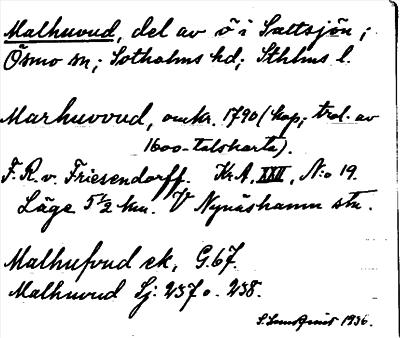 Malhuvud, del av ö i Saltsjön;
Ösmo sn; Sotholms hd; Sthlms l.
Marhuvud, omkr. 1790 (kop; trol. av
1600-talskarta).
F. R. v. Friesendorff. Kr.A. XXII, N:o 19.
Läge 5 1/2 km. V Nynäshamn stn.
Malhufvud ek, G.67.
Malhuvud Sj: 237 o. 238.
S. Lundquist 1936.